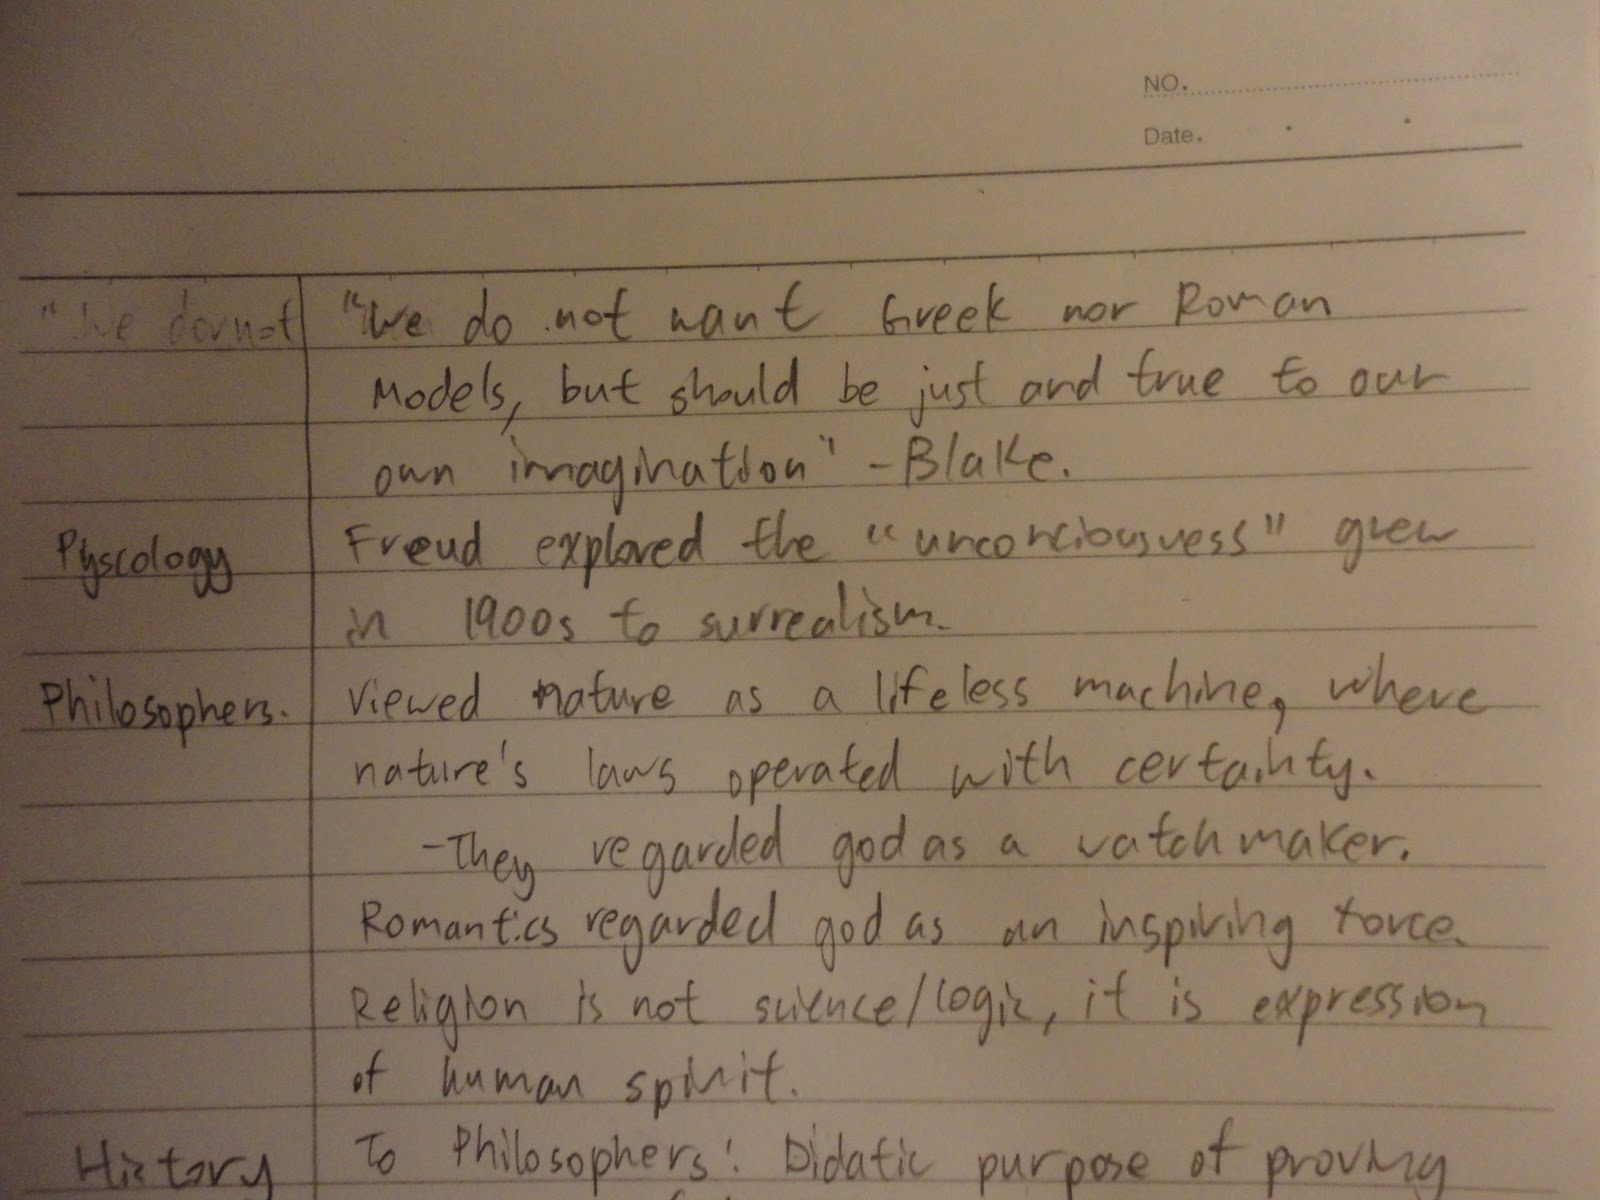 NO.
Date.
"We do not
"We do not want Greek nor Roman
Models, but should be just and true to our
own imagination" - Blake.
Pyscology
Freud explored the "unconciousness" grew
in 1900s to surrealism.
Philosophers.
Viewed nature as a lifeless machine, where
nature's laws operated with certainty.
- They regarded god as a watch maker.
Romantics regarded god as an inspiring force.
Religion is not science/logic, it is expression
of human spirit.
History
To Philosophers: Didatic purpose of proving